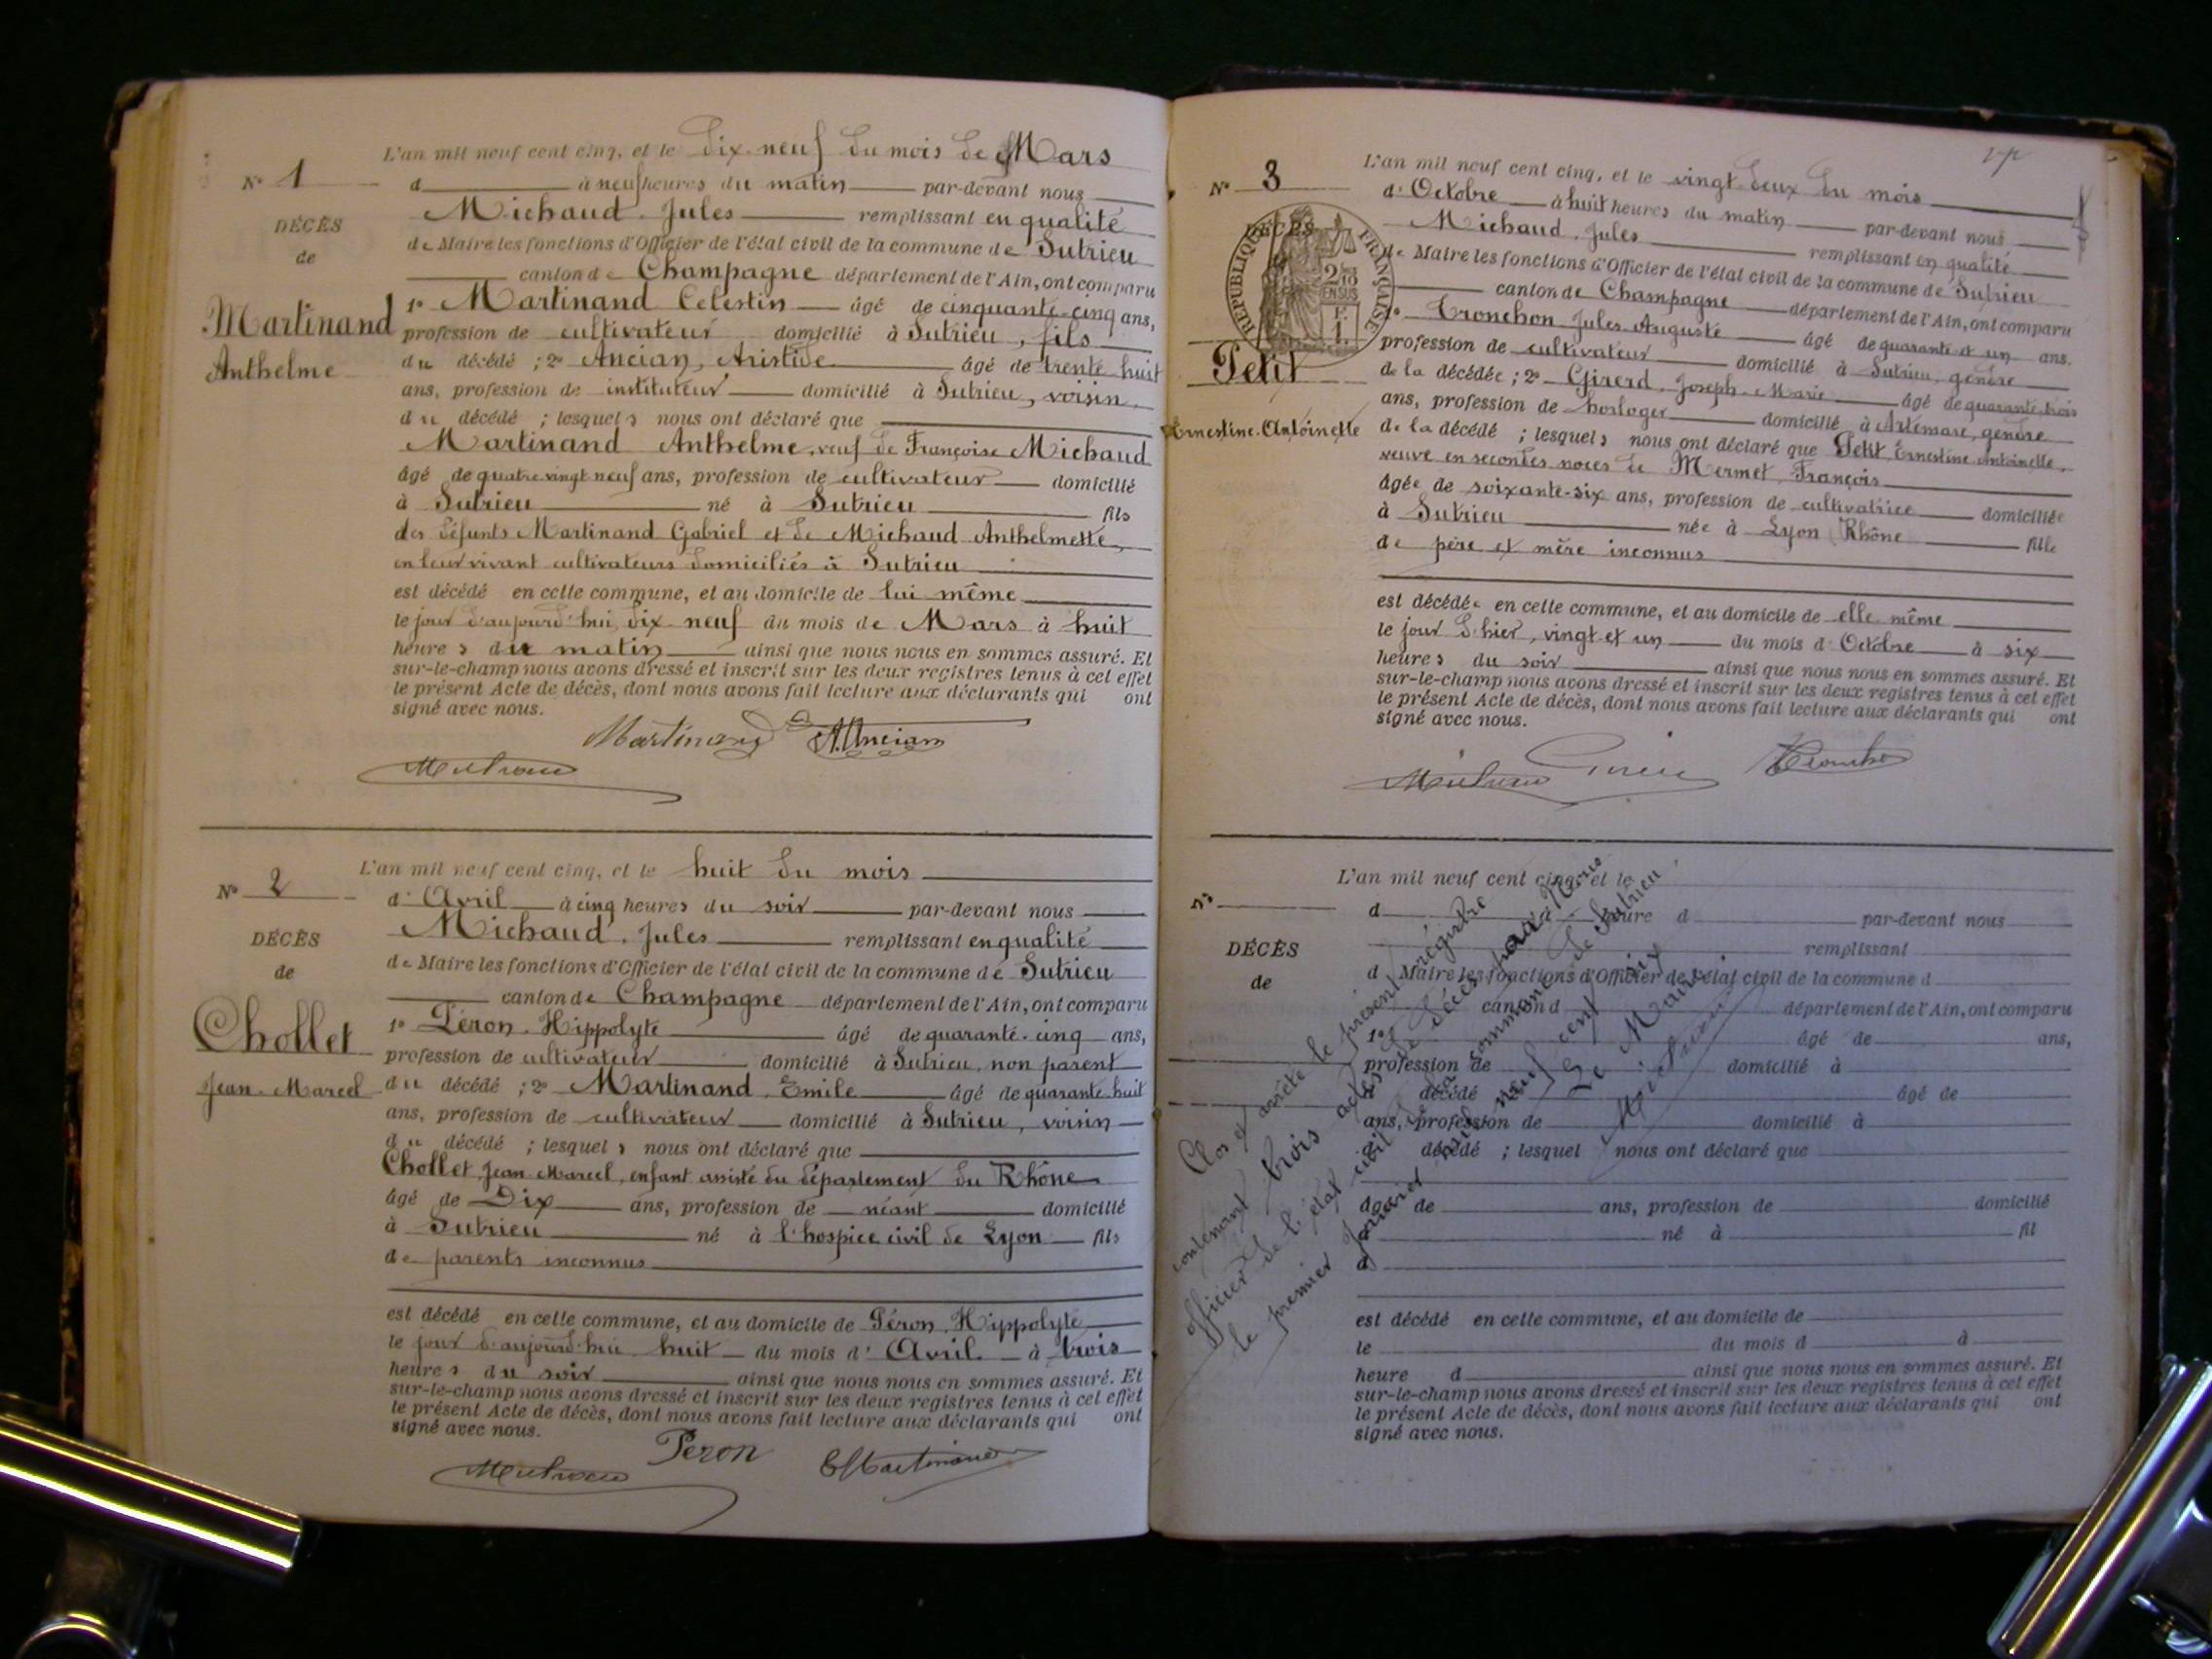 L'an mil neuf cent cinq, et le dix neuf du mois de Mars
N° 1
d à neuf heures du matin par-devant nous
Michaud, Jules remplissant en qualité
DÉCÈS
de Maire les fonctions d'Officier de l'état civil de la commune de Sutrieu
de
canton de Champagne département de l'Ain, ont comparu
Martinand
Anthelme
1° Martinand Celestin âgé de cinquante-cinq ans,
profession de cultivateur domicilié à Sutrieu, fils
du décédé ; 2° Ancian, Aristide âgé de trente huit
ans, profession de instituteur domicilié à Sutrieu, voisin
du décédé ; lesquels nous ont déclaré que
Martinand Anthelme, veuf de Françoise Michaud
âgé de quatre vingt neuf ans, profession de cultivateur domicilié
à Sutrieu né à Sutrieu fils
des défunts Martinand Gabriel et de Michaud Anthelmette,
en leur vivant cultivateurs domiciliés à Sutrieu
est décédé en cette commune, et au domicile de lui même
le jour d'aujourd'hui, dix neuf du mois de Mars à huit
heures du matin ainsi que nous nous en sommes assuré. Et
sur-le-champ nous avons dressé et inscrit sur les deux registres tenus à cet effet
le présent Acte de décès, dont nous avons fait lecture aux déclarants qui ont
signé avec nous.
Martinand A. Ancian
Michaud
L'an mil neuf cent cinq, et le huit du mois
N° 2
d'Avril à cinq heures du soir par-devant nous
Michaud, Jules remplissant en qualité
DÉCÈS
de Maire les fonctions d'Officier de l'état civil de la commune de Sutrieu
de
canton de Champagne département de l'Ain, ont comparu
Chollet
Jean-Marcel
1° Péron, Hippolyte âgé de quarante-cinq ans,
profession de cultivateur domicilié à Sutrieu, non parent
du décédé ; 2° Martinand, Emile âgé de quarante-huit
ans, profession de cultivateur domicilié à Sutrieu, voisin
du décédé ; lesquels nous ont déclaré que
Chollet, Jean-Marcel, enfant assisté du département du Rhône
âgé de Dix ans, profession de néant domicilié
à Sutrieu né à l'hospice civil de Lyon fils
de parents inconnus
est décédé en cette commune, et au domicile de Péron, Hippolyte
le jour d'aujourd'hui huit du mois d'Avril à trois
heures du soir ainsi que nous nous en sommes assuré. Et
sur-le-champ nous avons dressé et inscrit sur les deux registres tenus à cet effet
le présent Acte de décès, dont nous avons fait lecture aux déclarants qui ont
signé avec nous.
Peron E Martinand
Michaud
L'an mil neuf cent cinq, et le vingt-deux du mois
N° 3
d'Octobre à huit heures du matin par-devant nous
DÉCÈS
RÉPUBLIQUE FRANÇAISE
Michaud, Jules remplissant en qualité
de Maire les fonctions d'Officier de l'état civil de la commune de Sutrieu
canton de Champagne département de l'Ain, ont comparu
Petit
Ernestine-Antoinette
1° Tronchon Jules Auguste âgé de quarante et un ans.
profession de cultivateur domicilié à Sutrieu, gendre
de la décédée ; 2° Girerd, Joseph-Marie âgé de quarante-trois
ans, profession de horloger domicilié à Artemare, gendre
de la décédé ; lesquels nous ont déclaré que Petit, Ernestine Antoinette,
veuve en secondes noces de Mermet, François
âgée de soixante-six ans, profession de cultivatrice domiciliée
à Sutrieu née à Lyon (Rhône fille
de père et mère inconnus
est décédée en cette commune, et au domicile de elle même
le jour d'hier, vingt et un du mois d'Octobre à six
heures du soir ainsi que nous nous en sommes assuré. Et
sur-le-champ nous avons dressé et inscrit sur les deux registres tenus à cet effet
le présent Acte de décès, dont nous avons fait lecture aux déclarants qui ont
signé avec nous.
Michaud Tronchon
L'an mil neuf cent cinq, et le
N°
d à heure d par-devant nous
remplissant
DÉCÈS
d Maire les fonctions d'Officier de l'état civil de la commune d
de
canton d département de l'Ain, ont comparu
1° âgé de ans,
profession de domicilié à
d décédé ; 2° âgé de
ans, profession de domicilié à
d décédé ; lesquel nous ont déclaré que
âgé de ans, profession de domicilié
à né à fil
d
est décédé en cette commune, et au domicile de
le du mois d à
heure d ainsi que nous nous en sommes assuré. Et
sur-le-champ nous avons dressé et inscrit sur les deux registres tenus à cet effet
le présent Acte de décès, dont nous avons fait lecture aux déclarants qui ont
signé avec nous.
Clos et arrêté le présent régistre
contenant trois actes de décès, par Nous
officier de l'état civil de la commune de Sutrieu
le premier Janvier mil neuf cent six
Le Maire
Michaud